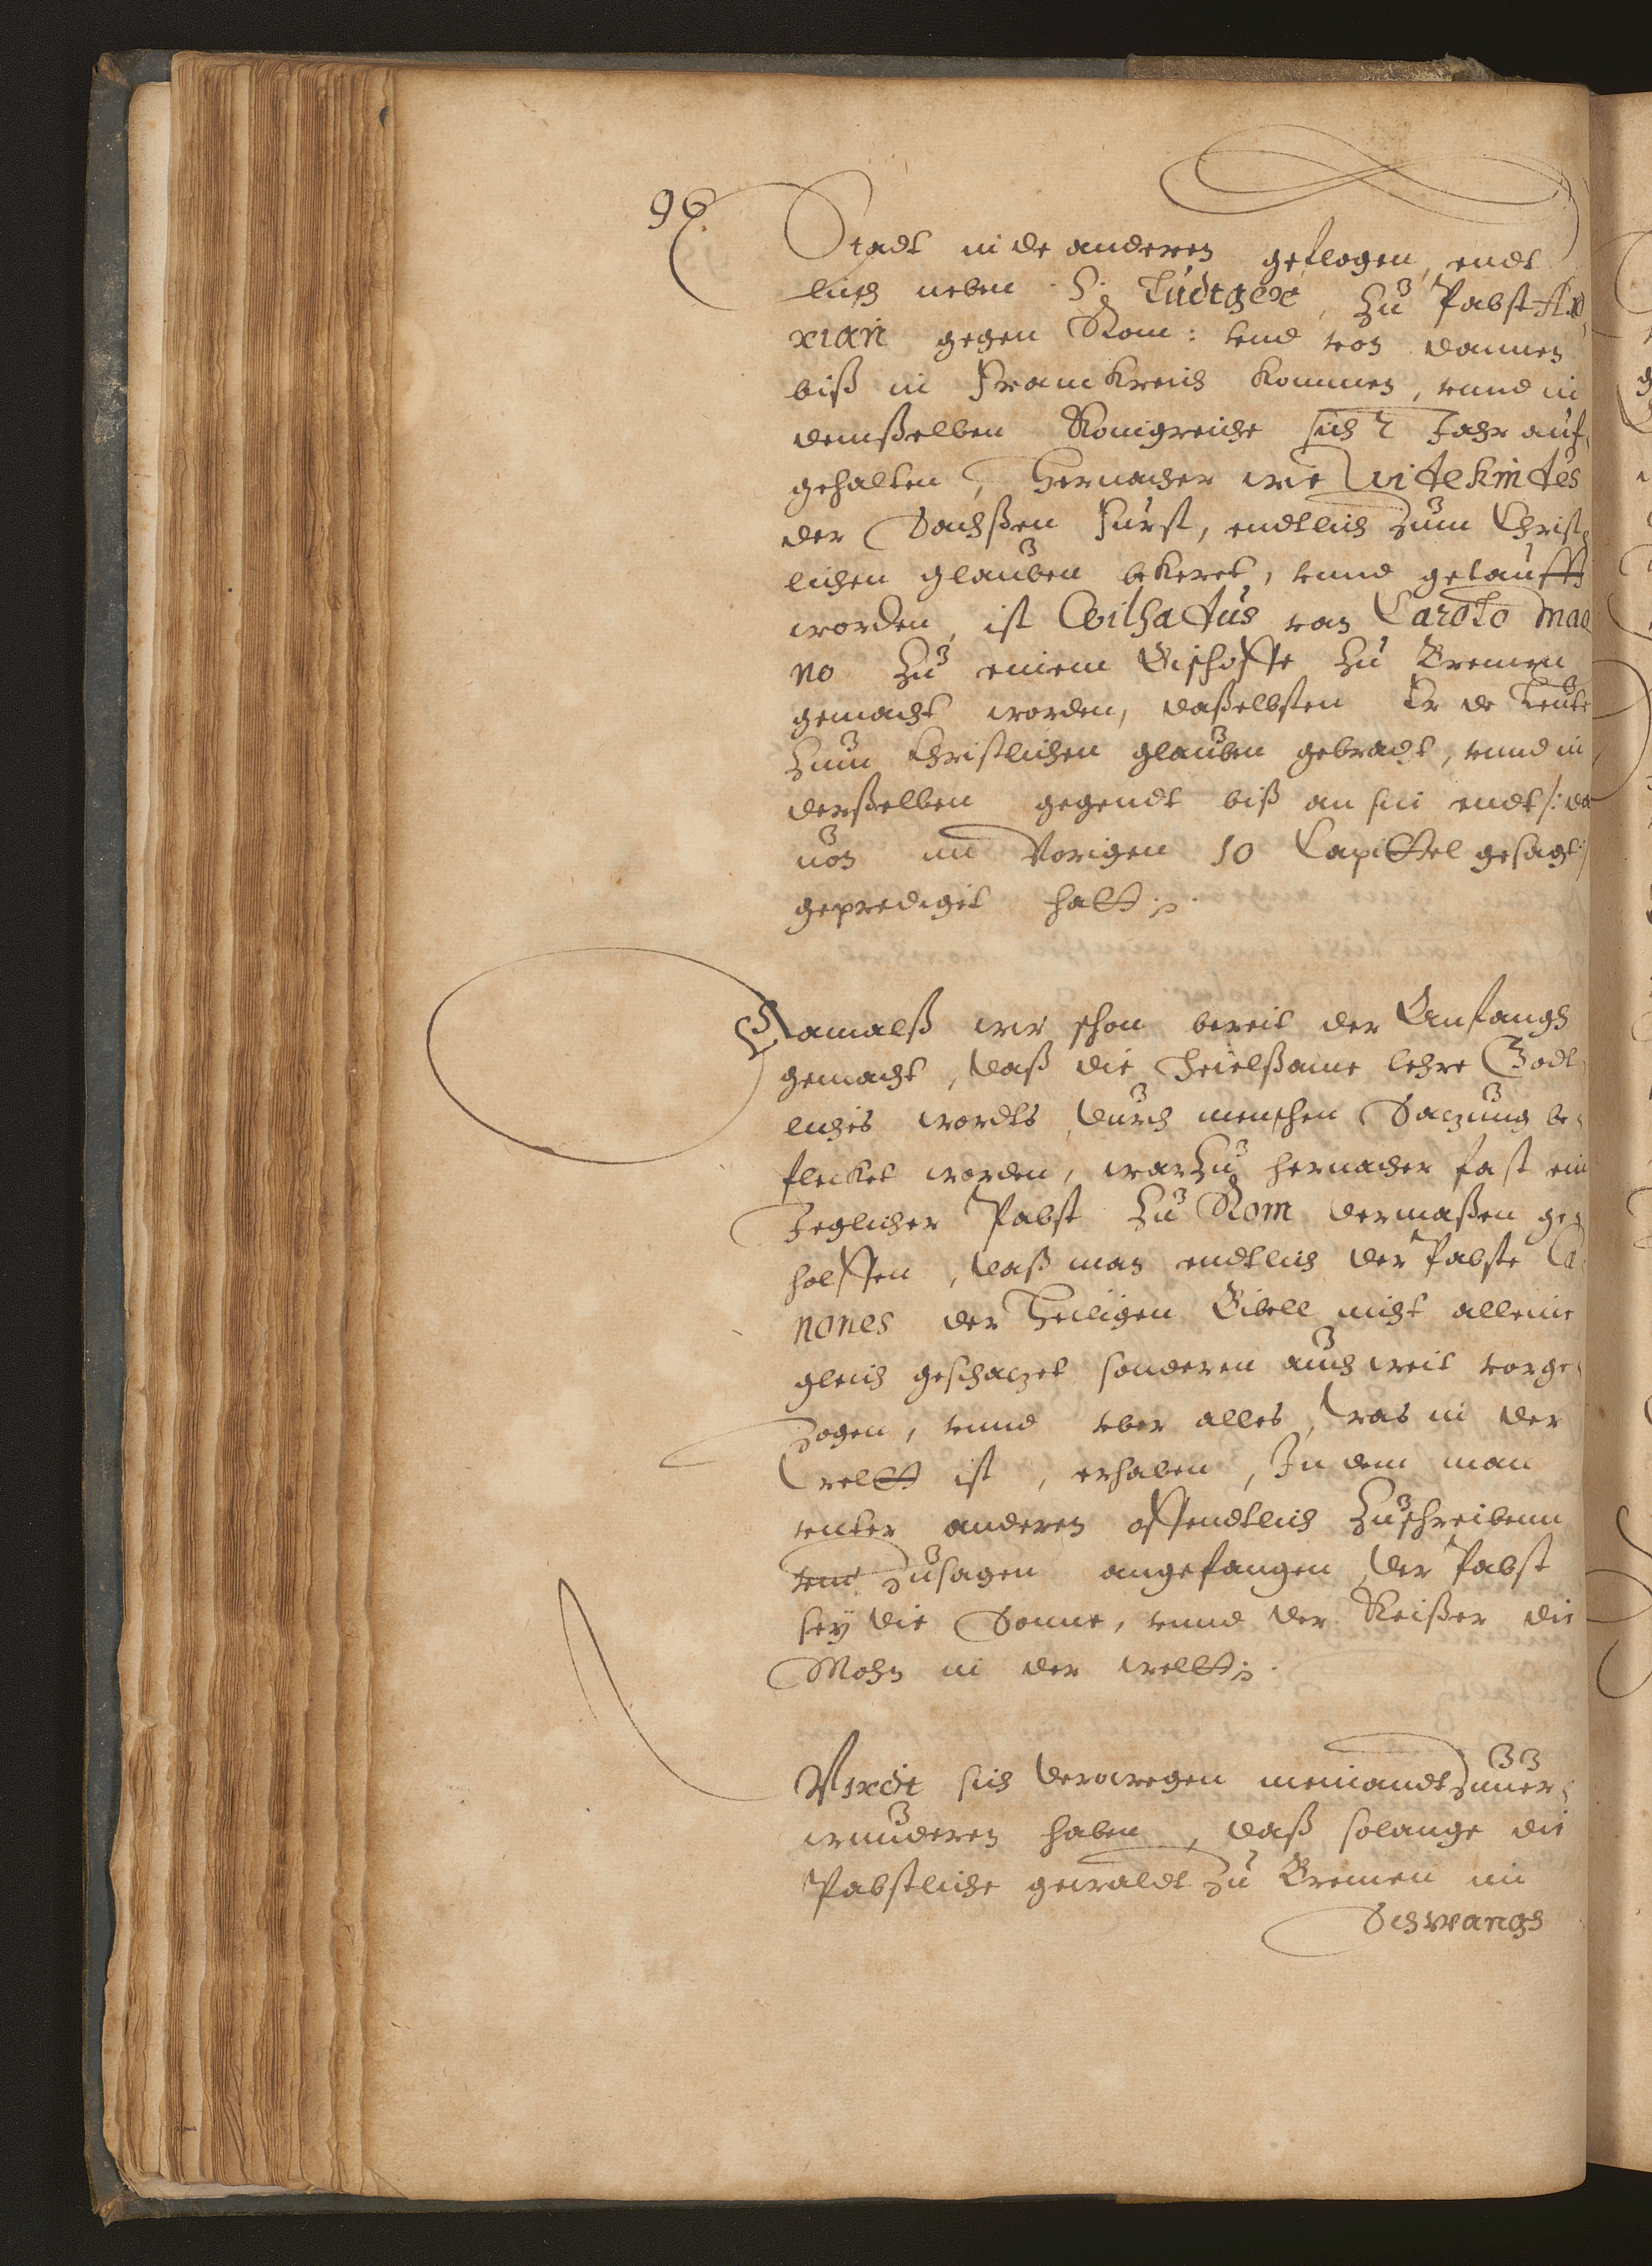 96
Stadt in de anderen geflogen, endt
lich neben S. Ludtgere, zu Pabst Ad
rian gegen Rom: vnd von dannen
biß in Franckreich kommen, vnnd in
demßelben Konigreiche sich 2 Jahr auf
gehalten, Hernacher wie Witekintes
der Sachßen Furst, endtlich zum Christ
lichen glauben bekeret, vnnd getaufft
worden, ist Wilhadus van Carolo Mag
no zu einem Bischoffe zu Bremen
gemacht worden, daßelbsten Er de Leute
zum Christlichen glauben gebracht, vnnd in
derßelben gegendt biß an sin endt /: da
uon im Vorigen 10 Capittel gesagt :/
geprediget hatt.
Damalß wie schon bereit der Anfangh
gemacht, daß die Heielßame lehre Godt
liches wordts durch menschen Satzung be
flecket worden, warzu hernacher fast ein
Jeglicher Pabst zu Rom dermaßen ge
holffen, daß man endtlich der Pabste Ca
nones der Heiligen Bibell nicht alleine
gleich geschatzet sonderen auch weit vorge
zogen, vnnd vber alles, was in der
Weltt ist, erhaben, In dem man
vnter anderen offendtlich zuschreibenn
vnd zusagen angefangen der Pabst
sey die Sonne, vnnd der Keißer die
Mohn in der weltt.
Wirdt sich derwegen niemandt zuuer
wunderen haben, daß solange die
Pabstliche gewaldt zu Bremen im
Schwangh